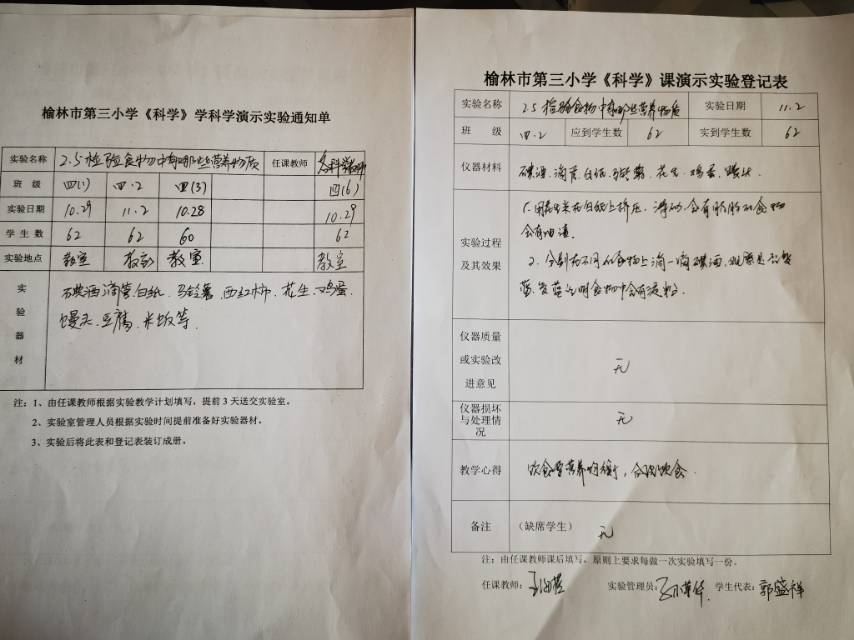 榆林市第三小学《科学》学科学演示实验通知单
实验名称 2.5检验食物中有哪些营养物质 任课教师
班 级 四(1) 四.2 四(3) 四(6)
实验日期 10.29 11.2 10.28 10.29
学生数 62 62 60 62
实验地点 教室 教室 教室 教室
实验器材
碘酒 滴管 白纸、马铃薯、西红柿、花生、鸡蛋、
馒头、豆腐、米饭等、
注：1、由任课教师根据实验教学计划填写，提前 3 天送交实验室。
2、实验室管理人员根据实验时间提前准备好实验器材。
3、实验后将此表和登记表装订成册。
榆林市第三小学《科学》课演示实验登记表
实验名称 2.5检验食物中有哪些营养物质 实验日期 11.2
班 级 四.2 应到学生数 62 实到学生数 62
仪器材料 碘酒、滴管、白纸、马铃薯、花生、鸡蛋、馒头、
实验过程
及其效果
含有油渍。
2、分别在不同的食物上滴一滴碘酒，观察是否变
蓝、变蓝证明食物中含有淀粉。
仪器质量
或实验改
进意见
无
仪器损坏
与处理情
况
无
教学心得 饮食要营养均衡，合理饮食.
备注 （缺席学生） 无
注：由任课教师课后填写，原则上要求每做一次实验填写一份。
任课教师： 实验管理员： 学生代表：郭盛祥